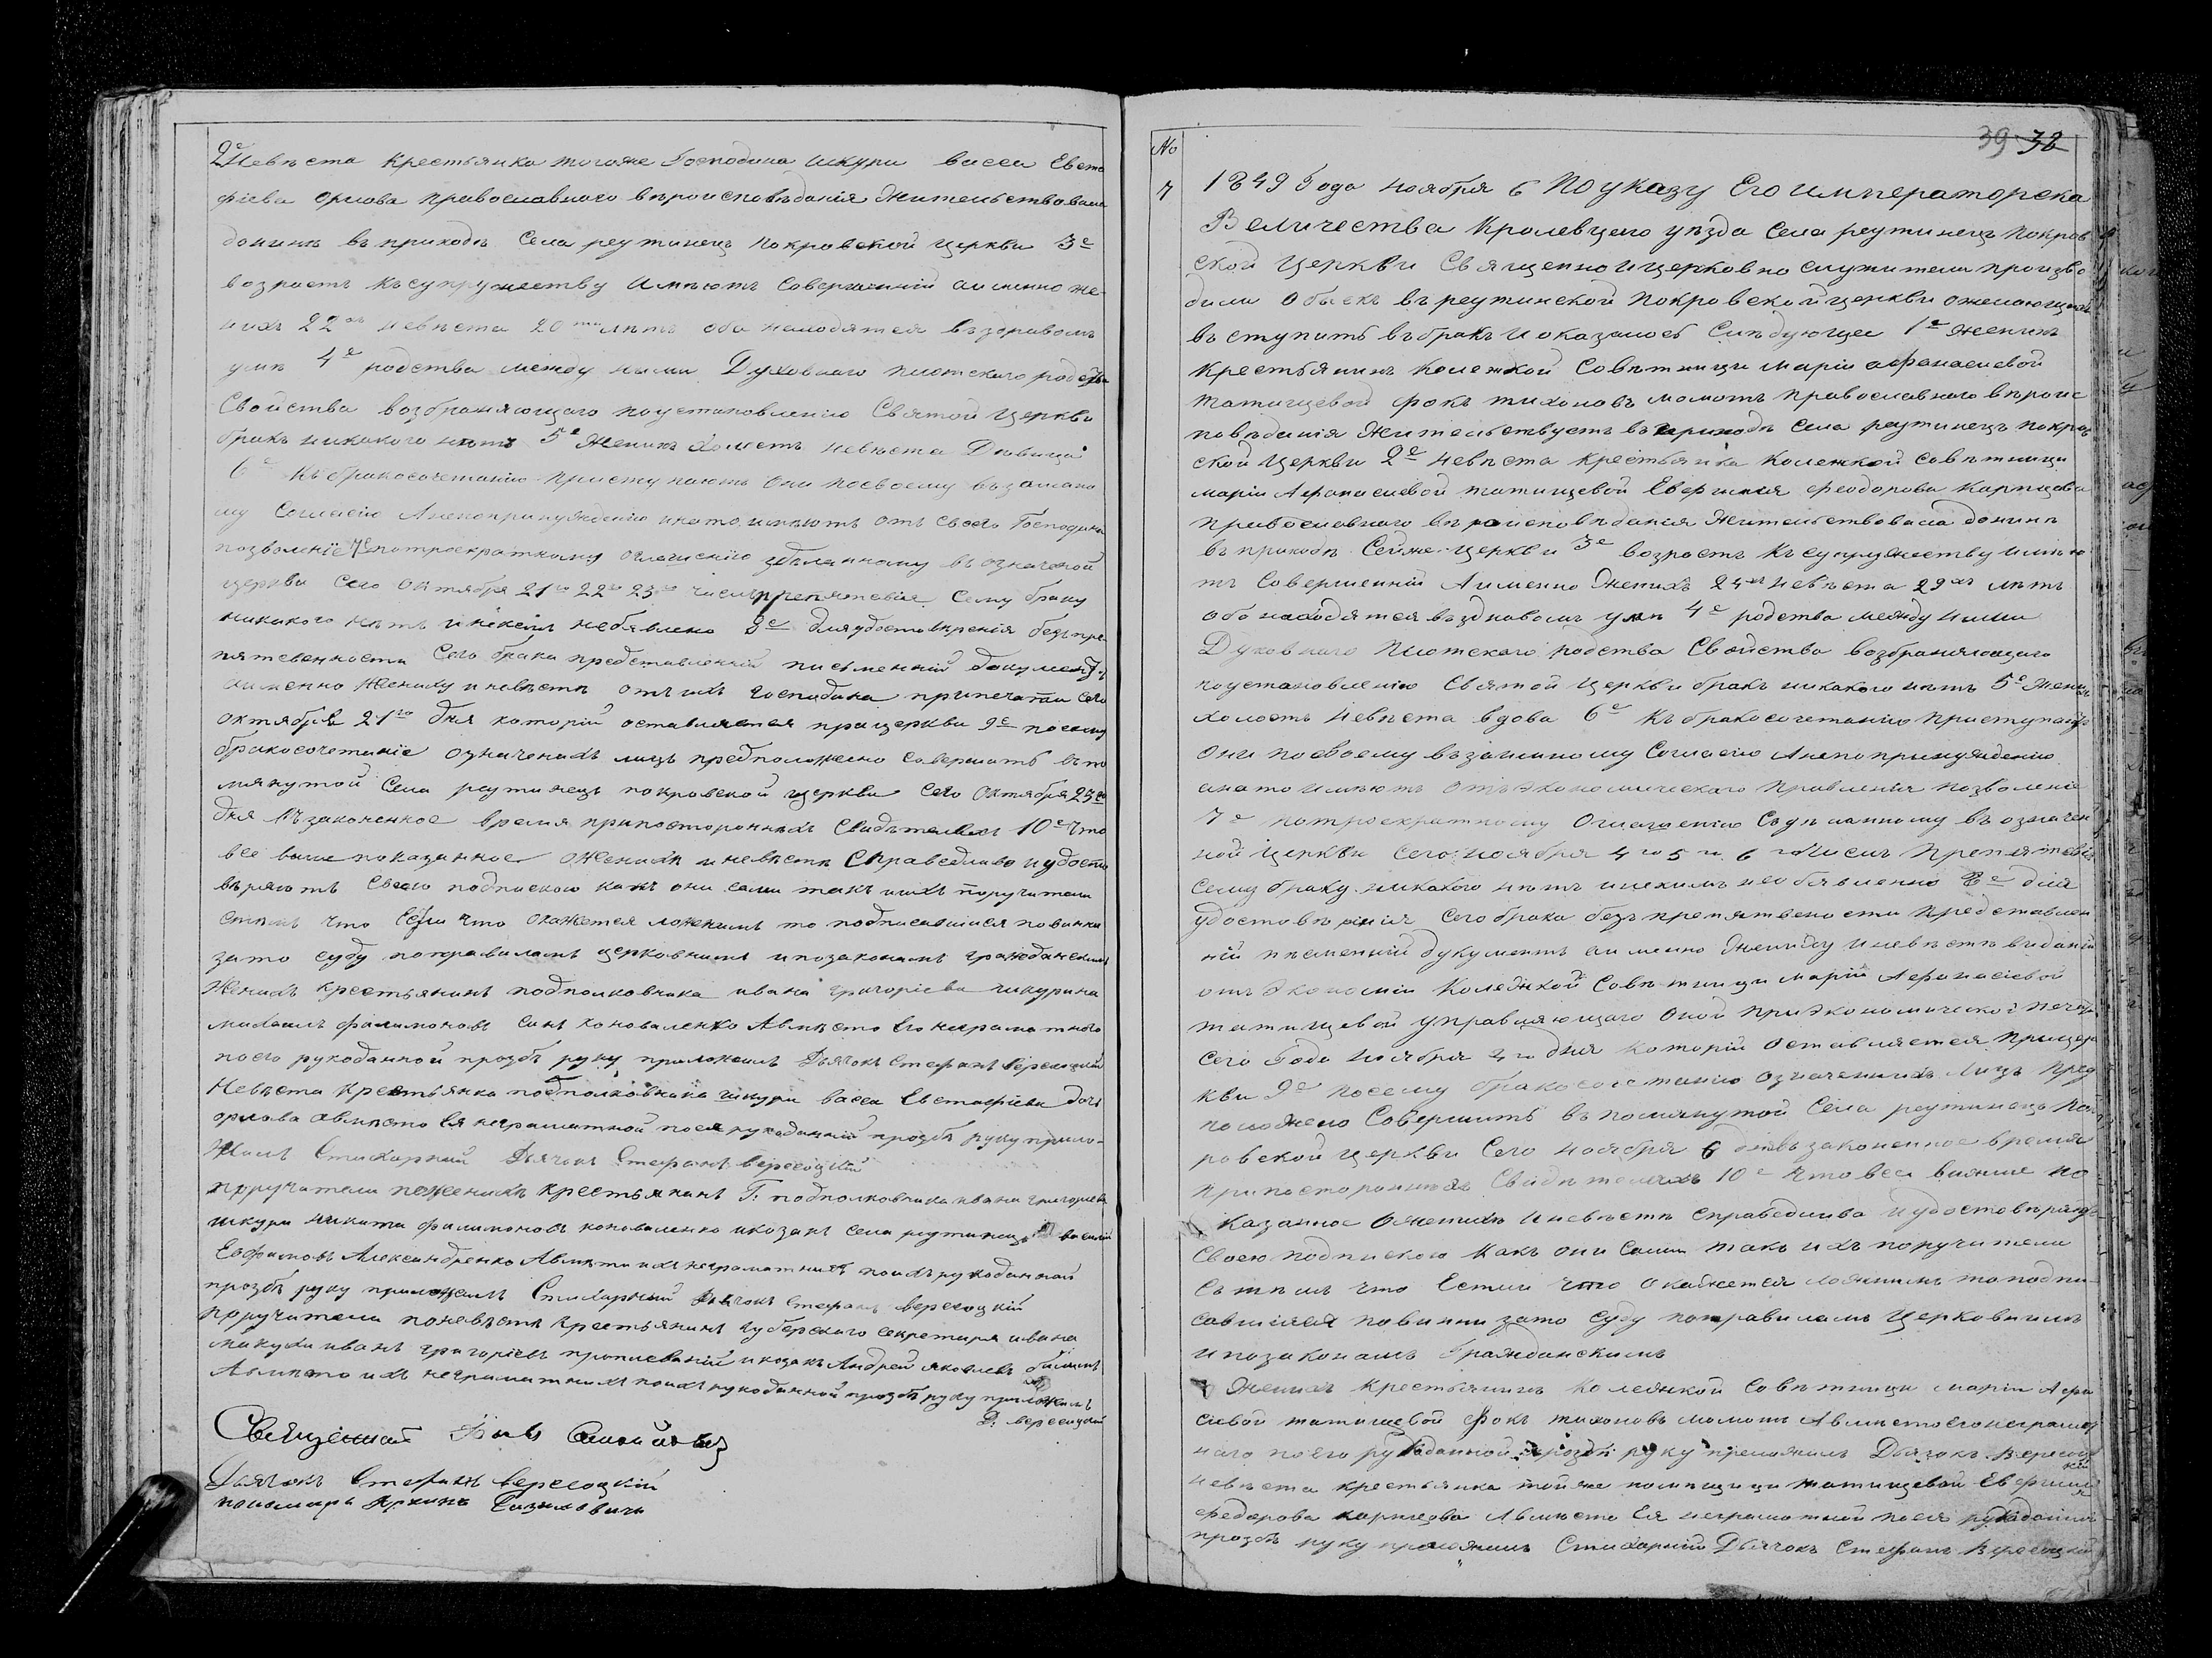 2е Невѣста крестьянка тогоже Господина шкури васса Евста
фіева орлова православного вѣроисповѣданія Жительствовала
донинѣ въ приходѣ Села реутинецъ покровской церкви 3е
возрастъ къ супружеству имѣютъ совершенній аименно же-
нихъ 22 невѣста 20 лѣтъ оба находятся въ здравомъ
умѣ 4е родства между ними Духовнаго плотскаго родства
Свойства возбраняющаго по установленію Святой церкви
бракъ никакого нѣтъ 5е Женихъ холостъ невѣста Дѣвица
6е къ бракосочетанію приступаютъ они по своему взаимно
му Согласію Анепопринужденію инато имѣютъ отъ своего Господина
позволеніе 7е потроекратному оглашенію здѣланному въ означеной
церкви Сего октября 21го 22го 23го числъ препятствія Сему браку
никакого нѣтъ инікемъ необявлено 8е для удостовѣренія безъ пре-
пятственности Сего брака представленній письменній документъ
аименно Жениху иневѣстѣ отъ ихъ господина припечатан Сего
октября 21го дня которій оставляется прицеркви 9е посему
бракосочетаніе означенихъ лицъ предположено Совершить въ по
мянутой Села реутинецъ покровской церкви Сего октября 23го
дня въ законенное время припосторонныхъ Свидѣтеляхъ 10е Что
все выше показанное оженихѣ иневѣстѣ Справедливо иудосто
вѣряютъ Своею подпискою какъ они сами такъ иихъ поручители
стѣмъ что Если что окажется ложнимъ то подписавшіися повинни
зато суду поправиламъ церковнимъ ипозаконамъ гражданскимъ
Женихъ крестьянинъ подполковника ивана григоріева шкурина
михаилъ филимоновъ синъ коноваленко Авмѣсто Его неграмотного
поего рукоданной прозбѣ руку приложилъ Дьячокъ Стефанъ Вересоцкій
Невѣста крестьянка подполковника шкури васса Евстафіева дочь
орлова авмѣсто Ея неграмотной поея рукоданній прозбѣ руку прило-
жилъ Стихарний Дьячокъ Стефанъ Вересоцкій
поручители поженихѣ крестьянинъ Г: подполковника ивана григоріева
шкури никита филимоновъ коноваленко икозакъ Села реутинецъ василій
Евфимовъ Александренко Авмѣсто ихъ неграматнихъ поихъ рукоданной
прозбѣ руку приложилъ Стихарный Дьячокъ Стефанъ Вересоцкій
поручители поневѣстѣ крестьянинъ губерского секретаря ивана
макухи иванъ григоріевъ икозакъ Андрей яковлевъ
Авмѣсто ихъ неграматнихъ поихъ рукоданной прозбѣ руку приложилъ
Д: Вересоцкій
Священникъ
Дьячокъ Стефанъ Вересоцкій
пономаръ
39 38
No
7
1849 Года ноября 6 По указу Его императорска
Величества Кролевцего уѣзда Села реутинецъ покров
ской церкви Священно ицерковно служители произво
дили обыскъ въ реутинской покровской церкви ожелающихъ
вступить въ бракъ и оказалось Слѣдующее 1е Женихъ
крестьянинъ колежкой Совѣтници маріи афанасиевой
татищевой фока тихоновъ момотъ православного вѣроис
повѣданія Жительствуетъ въ приходѣ Села реутинецъ покров
ской церкви 2е невѣста крестьянка колежкой совѣтници
маріи Афанасиевой татищевой Евфимия феодорова Карпцова
Православного вѣроисповѣданія Жительствовала донинѣ
въ приходѣ Сейже церкви 3е возрастъ къ супружеству имѣю
тъ Совершенній Аименно Женихъ 24 невѣста 29 лѣтъ
оба находятся въ здравомъ умѣ 4е родства между ними
Духовного Плотского родства Свойства возбраняющаго
поустановленію Святой церкви бракъ никакого нѣтъ 5е Женихъ
холостъ невѣста вдова 6е къ бракосочетанію приступаютъ
они посвоему взаимному Согласію Анепопринуждению
анато имѣютъ отъ экономическаго правленія позволеніе
7е потроекратному Оглашенію Сдѣланному въ означен
ной церкви Сего ноября 4го 5го 6го числъ Препятствія
Сему браку никакого нѣтъ иникимъ необявленно 8е для
удостовѣренія Сего брака безъ препятствености представлен
ній писменній дукументъ аименно Жениху иневѣстѣ виданій
отъ экономіи Колежкой Совѣтници маріи Афонасіевой
татищевой управляющаго оной при экономической печати
Сего Года ноября 4го дня которій оставляется прицер
кви 9е посему бракосочетанію означенихъ Лицъ пред
положено Совершить въ помянутой Села реутинецъ пок
ровской церкви Сего ноября 6 дня въ законенное время
припосторонныхъ Свидѣтеляхъ 10е Что все вишше по
казанное оженихѣ иневѣстѣ справедливо иудостовѣряютъ
Своею подпискою какъ они Сами такъ ихъ поручители
Стѣмъ что Естли что окажется ложнимъ то подпи-
савшіися повинни зато Суду поправиламъ церковнимъ
ипозаконамъ Гражданскимъ
Женихъ крестьянинъ колежкой совѣтници маріи Афа
сиевой татищевой Фока тихоновъ момотъ Авмѣсто его неграмот
наго поего рукоданной прозбѣ руку приложилъ Дьячокъ Вересоц
кій
невѣста крестьянка тойже помѣщици татищевой Евфимия
федорова карпцова Авмѣсто Ея неграмотной поея рукоданной
прозбѣ руку приложилъ Стихарній Дьячокъ Стефанъ Вересоцкій